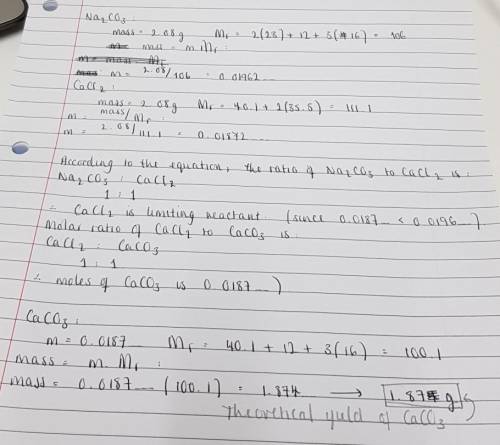 Na₂CO₃ :
mass = 2.08g Mr = 2(23) + 12 + 3(16) = 106
m = mass = m.Mr :
m = mass Mr
mass : m = 2.08/106 = 0.01962...
CaCl₂ :
mass = 2.08g Mr = 40.1 + 2(35.5) = 111.1
m = mass/Mr :
m = 2.08/111.1 = 0.01872...
According to the equation, the ratio of Na₂CO₃ to CaCl₂ is :
Na₂CO₃ : CaCl₂
1 : 1
∴ CaCl₂ is limiting reactant. (since 0.0187... < 0.0196...)
Molar ratio of CaCl₂ to CaCO₃ is :
CaCl₂ : CaCO₃
1 : 1
∴ moles of CaCO₃ is 0.0187...)
CaCO₃ :
m = 0.0187... Mr = 40.1 + 12 + 3(16) = 100.1
mass = m.Mr :
mass = 0.0187... (100.1) = 1.874 → 1.87g
Theoretical yield of CaCO₃